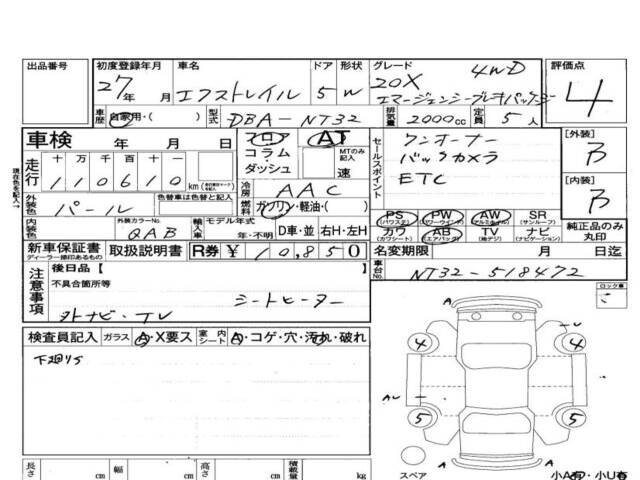 出品番号 初度登録年月 車名 ドア 形状 グレード 評価点
27年 月 エクストレイル 5 W 20X 4WD
エマージェンシーブレーキパッケージ
4
車歴 自家用・( ) 型式 DBA-NT32 排気量 2000cc 定員 5人
車検 年 月 日
フロア コラム・ダッシュ AT MTのみ記入 速
セールスポイント
ワンオーナー
バックカメラ
ETC
[外装] B
[内装] B
走行 十 万 千 百 十 一
110610 km
冷房 AAC
外装色 パール 色替車は色替と記入
燃料 ガソリン・軽油・( )
内装色 外装カラーNo. QAB 輸入車 モデル年式 年・不明 D車・並 右H・左H
PS (パワステ) PW (パワーウインド) AW (アルミホイル) SR (サンルーフ)
カワ (カワシート) AB (エアバック) TV (地デジ) ナビ (ナビゲーション)
純正品のみ丸印
新車保証書 ディーラー捺印あるもの 取扱説明書 R券 ¥ 10,850
名変期限 月 日迄
車台No. NT32-518472
注意事項
後日品【
不具合箇所等
シートヒーター
外ナビ・TV
ロック車
現在色を記入→
検査員記入 ガラス A・X要ス 室内シート A・コゲ・穴・汚れ・破れ
下廻りS
A
U
4 4
AU
5 5
A
スペア
小A有・小U有
長さ cm 幅 cm 高さ cm 積載量 kg